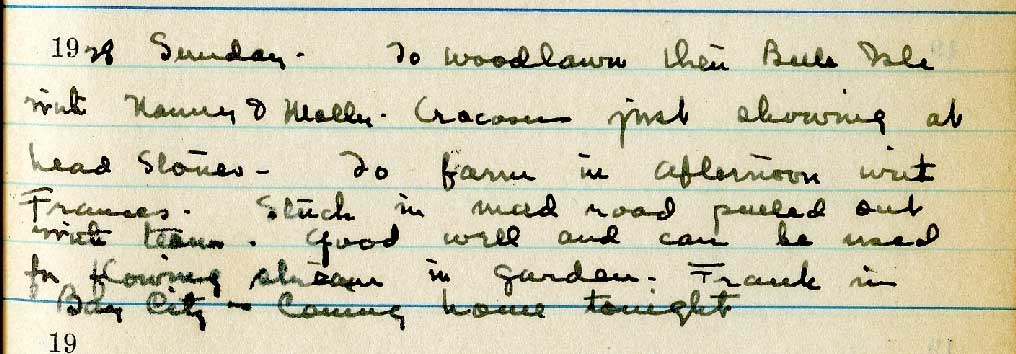 1928 Sunday. To Woodlawn then Belle Isle
with Nanny & Molly. Crocuses just showing at
head Stones - To farm in afternoon with
Frances. Stuck in mud road pulled out
with team. Good well and can be used
for flowing stream in garden. Frank in
Bay City - Coming home tonight
19